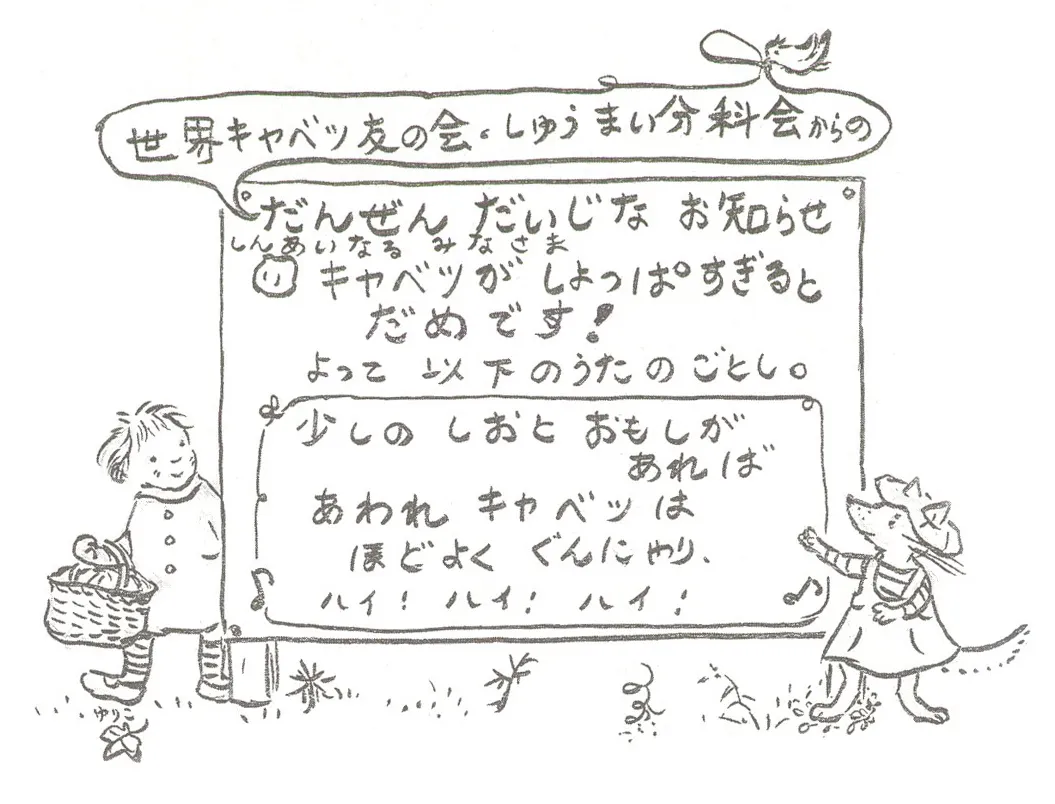 世界キャベツ友の会・しゅうまい分科会からの
だんぜん だいじな お知らせ
しんあいなる みなさま
り キャベツが しょっぱすぎると
だめです！
よって 以下のうたのごとし。
少しの しおと おもしが
あれば
あわれ キャベツは
ほどよく ぐんにゃり、
ハイ！ ハイ！ ハイ！
ゆりこ